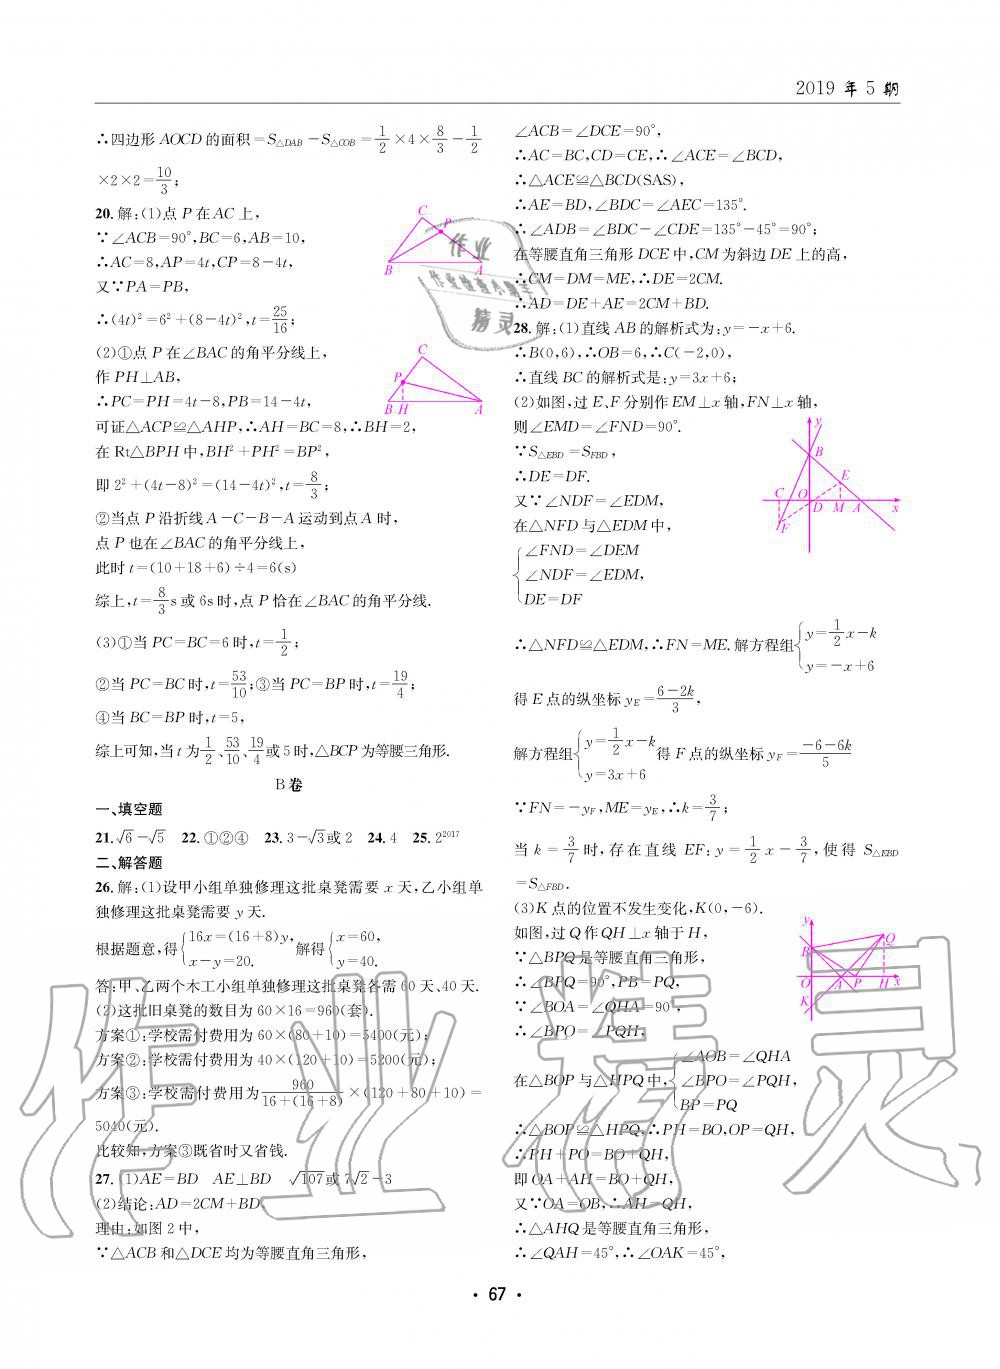 2019 年 5 期
∴四边形 AOCD 的面积=S△DAB-S△COB=1/2×4×8/3-1/2
×2×2=10/3;
20.解:(1)点 P 在 AC 上,
∵∠ACB=90°,BC=6,AB=10,
∴AC=8,AP=4t,CP=8-4t,
又∵PA=PB,
∴(4t)²=6²+(8-4t)²,t=25/16;
(2)①点 P 在∠BAC 的角平分线上,
作 PH⊥AB,
∴PC=PH=4t-8,PB=14-4t,
可证△ACP≌△AHP,∴AH=BC=8,∴BH=2,
在 Rt△BPH 中,BH²+PH²=BP²,
即 2²+(4t-8)²=(14-4t)²,t=8/3;
②当点 P 沿折线 A-C-B-A 运动到点 A 时,
点 P 也在∠BAC 的角平分线上,
此时 t=(10+18+6)÷4=6(s)
综上,t=8/3 s 或 6s 时,点 P 恰在∠BAC 的角平分线.
(3)①当 PC=BC=6 时,t=1/2;
②当 PC=BC 时,t=53/10;③当 PC=BP 时,t=19/4;
④当 BC=BP 时,t=5,
综上可知,当 t 为1/2、53/10、19/4或 5 时,△BCP 为等腰三角形.
C
P
B
A
C
P
B H
A
B 卷
一、填空题
21.√6-√5 22.①②④ 23.3-√3或 2 24.4 25.2²⁰¹⁷
二、解答题
26.解:(1)设甲小组单独修理这批桌凳需要 x 天,乙小组单
独修理这批桌凳需要 y 天.
根据题意,得{16x=(16+8)y, x-y=20. 解得{x=60, y=40.
答:甲、乙两个木工小组单独修理这批桌凳各需 60 天、40 天.
(2)这批旧桌凳的数目为 60×16=960(套).
方案①:学校需付费用为 60×(80+10)=5400(元);
方案②:学校需付费用为 40×(120+10)=5200(元);
方案③:学校需付费用为960/(16+(16+8))×(120+80+10)=
5040(元).
比较知,方案③既省时又省钱.
27.(1)AE=BD AE⊥BD √107或 7√2-3
(2)结论:AD=2CM+BD,
理由:如图 2 中,
∵△ACB 和△DCE 均为等腰直角三角形,
∠ACB=∠DCE=90°,
∴AC=BC,CD=CE,∴∠ACE=∠BCD,
∴△ACE≌△BCD(SAS),
∴AE=BD,∠BDC=∠AEC=135°.
∴∠ADB=∠BDC-∠CDE=135°-45°=90°;
在等腰直角三角形 DCE 中,CM 为斜边 DE 上的高,
∴CM=DM=ME,∴DE=2CM.
∴AD=DE+AE=2CM+BD.
28.解:(1)直线 AB 的解析式为:y=-x+6.
∴B(0,6),∴OB=6,∴C(-2,0),
∴直线 BC 的解析式是:y=3x+6;
(2)如图,过 E、F 分别作 EM⊥x 轴,FN⊥x 轴,
则∠EMD=∠FND=90°.
∵S△EBD=SFBD,
∴DE=DF.
又∵∠NDF=∠EDM,
在△NFD 与△EDM 中,
{∠FND=∠DEM
∠NDF=∠EDM,
DE=DF
y
B
E
C O
D M A x
F
∴△NFD≌△EDM,∴FN=ME.解方程组{y=1/2x-k y=-x+6
得 E 点的纵坐标 yE=(6-2k)/3,
解方程组{y=1/2x-k y=3x+6 得 F 点的纵坐标 yF=(-6-6k)/5
∵FN=-yF,ME=yE,∴k=3/7;
当 k=3/7 时,存在直线 EF:y=1/2x-3/7,使得 S△EBD
=S△FBD.
(3)K 点的位置不发生变化,K(0,-6).
如图,过 Q 作 QH⊥x 轴于 H,
∵△BPQ 是等腰直角三角形,
∴∠BPQ=90°,PB=PQ,
∵∠BOA=∠QHA=90°,
∴∠BPO=∠PQH,
在△BOP 与△HPQ 中,{∠AOB=∠QHA ∠BPO=∠PQH, BP=PQ
∴△BOP≌△HPQ,∴PH=BO,OP=QH,
∴PH+PO=BO+QH,
即 OA+AH=BO+QH,
又∵OA=OB,∴AH=QH,
∴△AHQ 是等腰直角三角形,
∴∠QAH=45°,∴∠OAK=45°,
y
Q
B
O A P H x
K
作业
作业检查小帮手
精灵
作业精灵
· 67 ·